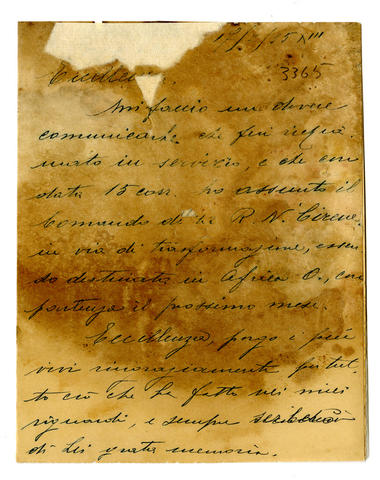 XIII
3365
Mi faccio un dovere
comunicarle che fui richia
mato in servizio, e che con
data 15 corr. ho assunto il
Comando della R. N. Cirene
in via di trasformazione, essen
do destinata in Africa O., con
partenza il prossimo mese.
Eccellenza, porgo i più
vivi ringraziamenti per tut
to ciò che ha fatto nei miei
riguardi, e sempre serberò
di Lei grata memoria.